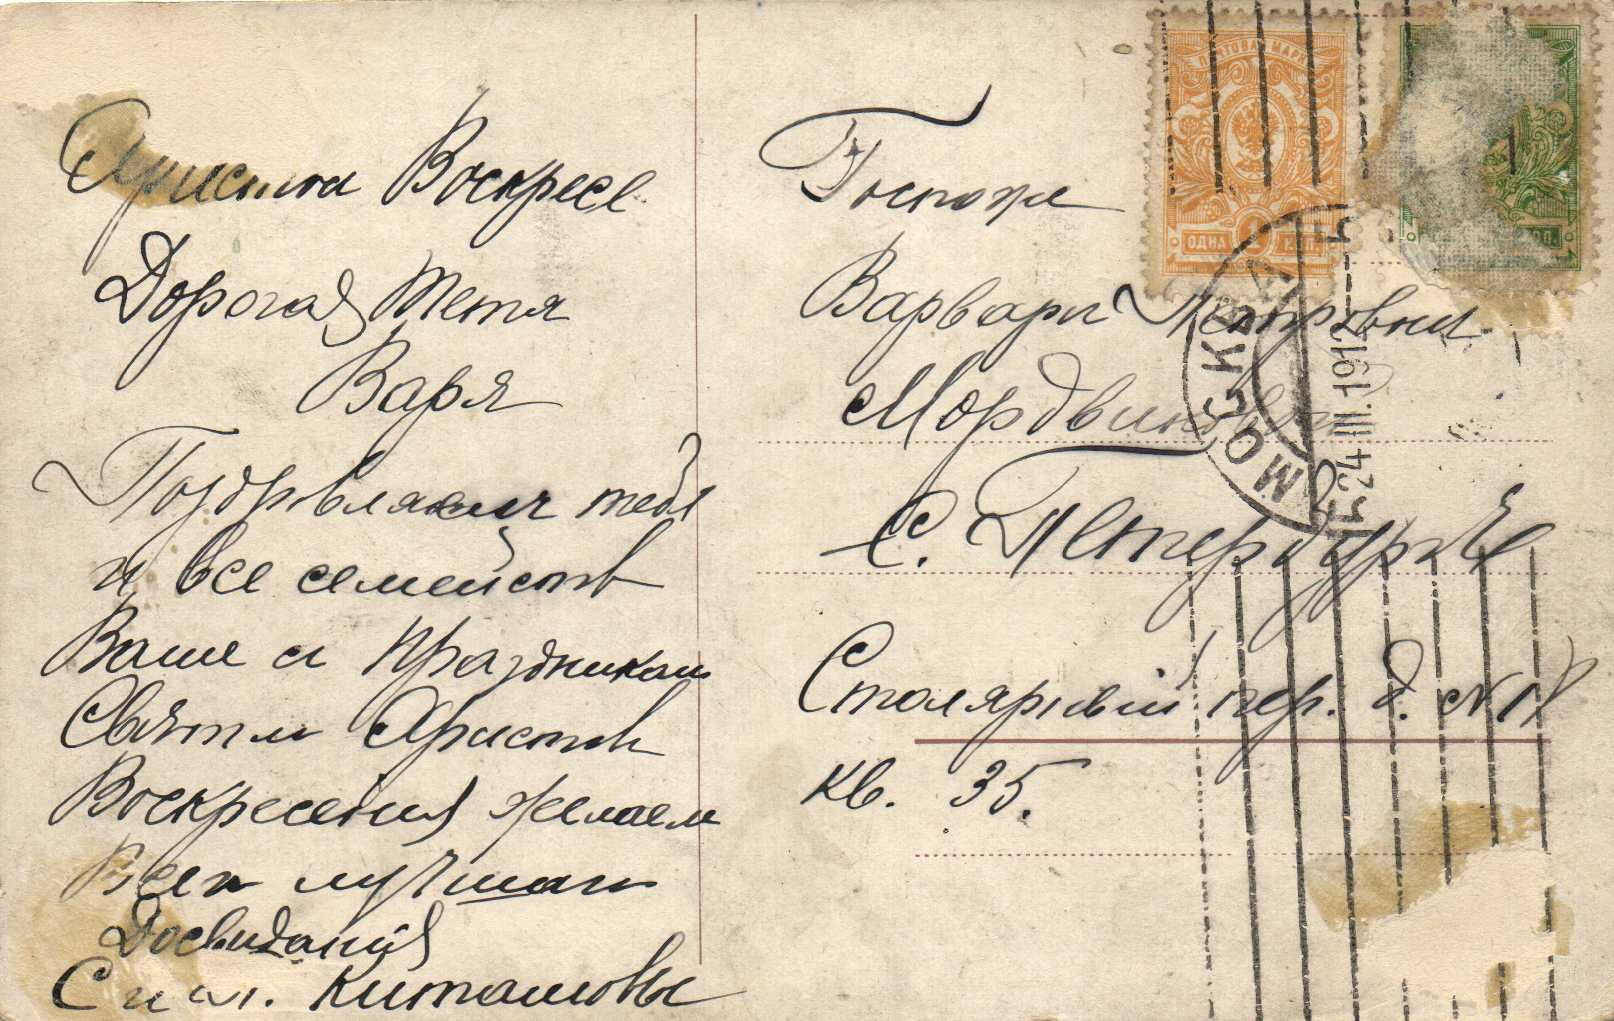 Христос Воскресе.
Дорогая Тетя
Варя
Поздровляем тебя
и все семейств
Ваше с праздником
Святым Христов
Воскресения желаем
Всех лучшаго
Досвидания
С.
Госпоже
Варвари Петровни
Мордвиновой
С. Петербургъ
Столярный пер. д. №
кв. 35.
ОДНА 1 КОП.
КОП.
МОСКВА
24.III.1912